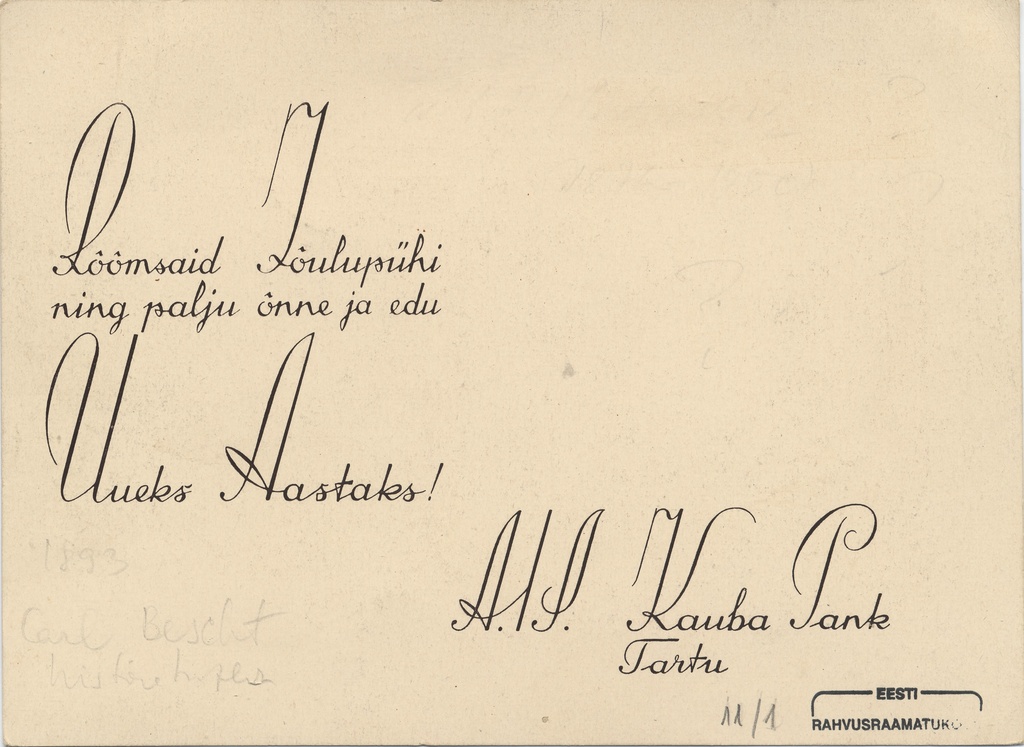 Rôômsaid Jôulupühi
ning palju ônne ja edu
Uueks Aastaks!
A./S. Kauba Pank
Tartu
1893
Carl Bescht
11/1
EESTI
RAHVUSRAAMATUKO